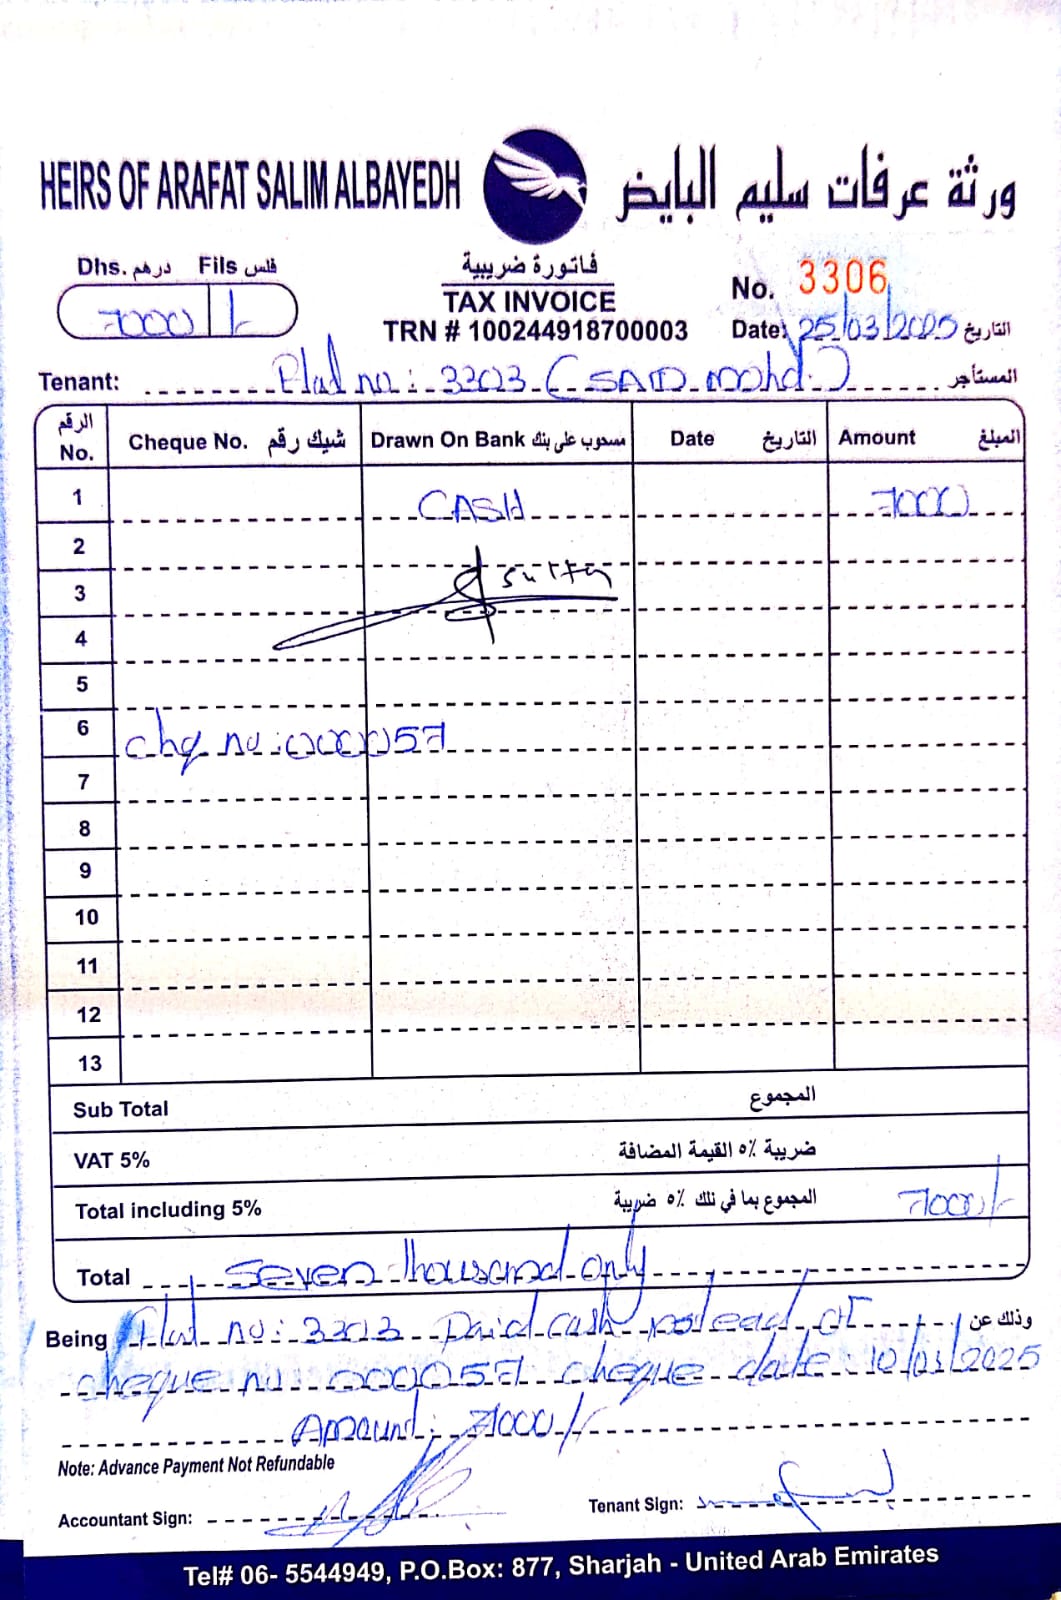 HEIRS OF ARAFAT SALIM ALBAYEDH ورثة عرفات سليم البايض
Dhs. درهم Fils فلس
7000 /-
فاتورة ضريبية
TAX INVOICE
TRN # 100244918700003
No. 3306
Date: 25/03/2025 التاريخ
Tenant: Flat no: 3303 (SAID mohd.) المستأجر
الرقم No. Cheque No. شيك رقم Drawn On Bank مسحوب على بنك Date التاريخ Amount المبلغ
1 CASH 7000
2
3
4
5
6 chq no: 000057
7
8
9
10
11
12
13
Sub Total المجموع
VAT 5% ضريبة ٥٪ القيمة المضافة
Total including 5% المجموع بما في ذلك ٥٪ ضريبة 7000/-
Total Seven thousand only
Being Flat no: 3303 paid cash instead of وذلك عن
cheque no 000057 cheque date: 10/03/2025
Amount: 7000/-
Note: Advance Payment Not Refundable
Accountant Sign: Tenant Sign:
Tel# 06- 5544949, P.O.Box: 877, Sharjah - United Arab Emirates